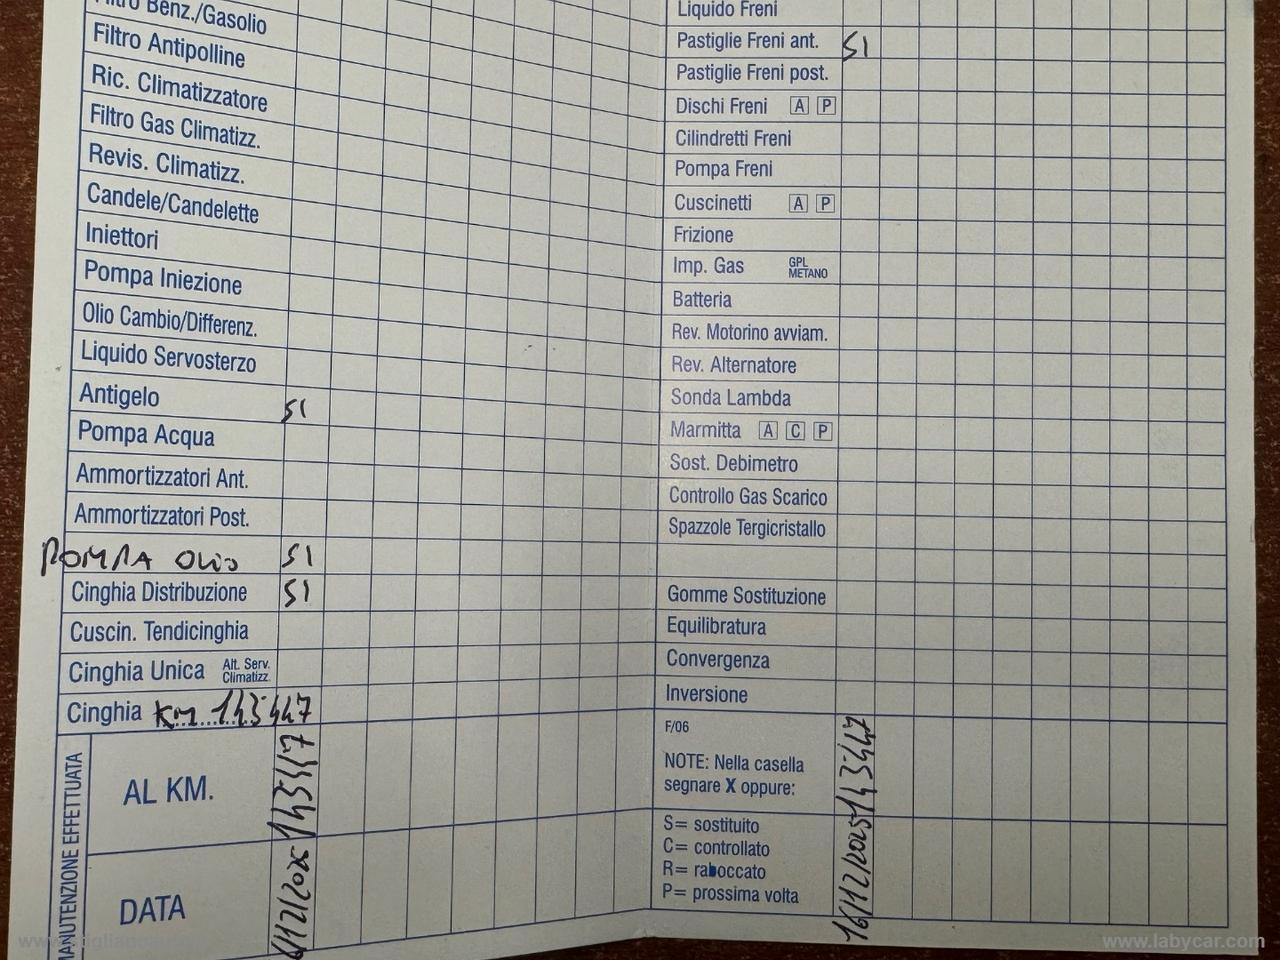 Filtro Benz./Gasolio
Filtro Antipolline
Ric. Climatizzatore
Filtro Gas Climatizz.
Revis. Climatizz.
Candele/Candelette
Iniettori
Pompa Iniezione
Olio Cambio/Differenz.
Liquido Servosterzo
Antigelo SI
Pompa Acqua
Ammortizzatori Ant.
Ammortizzatori Post.
POMPA OLIO SI
Cinghia Distribuzione SI
Cuscin. Tendicinghia
Cinghia Unica Alt. Serv. Climatizz.
Cinghia KM 143447
MANUTENZIONE EFFETTUATA
AL KM. 143447
DATA 16/12/2025
Liquido Freni
Pastiglie Freni ant. SI
Pastiglie Freni post.
Dischi Freni A P
Cilindretti Freni
Pompa Freni
Cuscinetti A P
Frizione
Imp. Gas GPL METANO
Batteria
Rev. Motorino avviam.
Rev. Alternatore
Sonda Lambda
Marmitta A C P
Sost. Debimetro
Controllo Gas Scarico
Spazzole Tergicristallo
Gomme Sostituzione
Equilibratura
Convergenza
Inversione
F/06
NOTE: Nella casella
segnare X oppure:
S= sostituito
C= controllato
R= raboccato
P= prossima volta
16/12/2025 143447
www.labycar.com